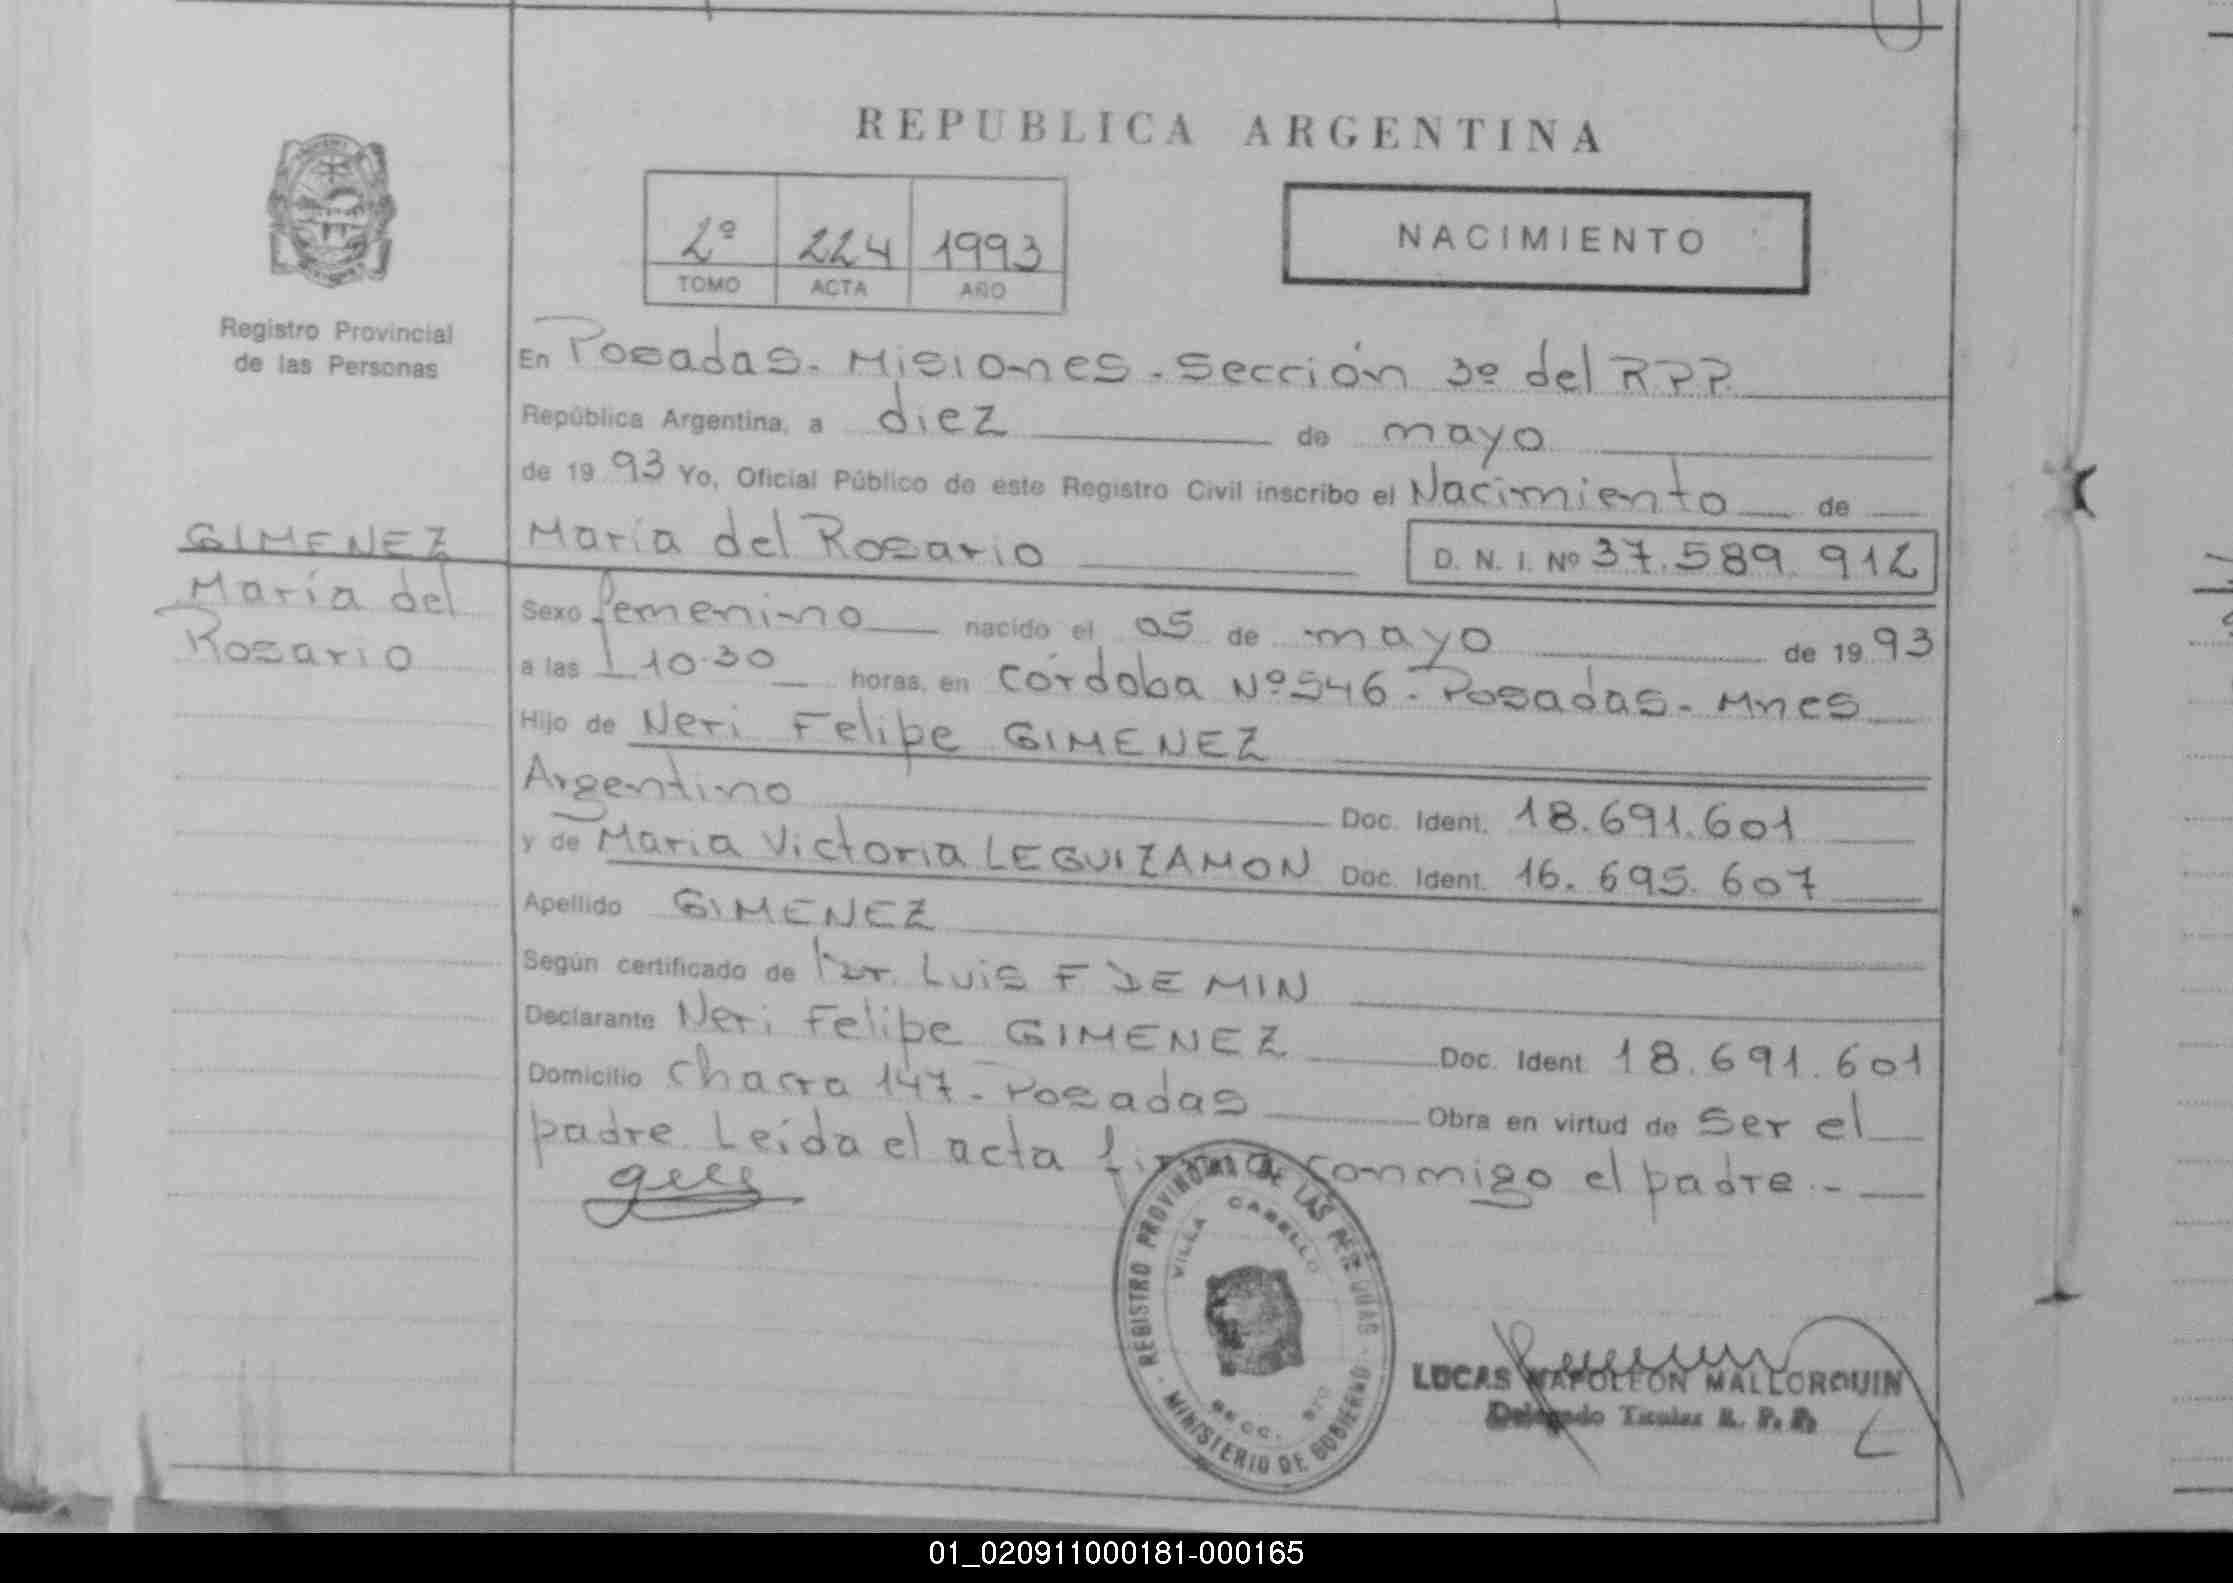 REPUBLICA ARGENTINA
2º 224 1993
TOMO ACTA AÑO
NACIMIENTO
Registro Provincial
de las Personas
GIMENEZ
María del
Rosario
En Posadas - Misiones - Sección 3º del RPP.
República Argentina, a diez de mayo
de 1993 Yo, Oficial Público de este Registro Civil inscribo el Nacimiento de
María del Rosario D. N. I. Nº 37.589.912
Sexo femenino nacido el 05 de mayo de 1993
a las 10.30 horas, en Córdoba Nº 546 - Posadas - Mnes
Hijo de Neri Felipe GIMENEZ
Argentino Doc. Ident. 18.691.601
y de Maria Victoria LEGUIZAMON Doc. Ident. 16.695.607
Apellido GIMENEZ
Según certificado de Dr. Luis F DE MIN
Declarante Neri Felipe GIMENEZ Doc. Ident. 18.691.601
Domicilio Chacra 147 - Posadas Obra en virtud de ser el
padre. Leída el acta firma conmigo el padre.-
REGISTRO PROVINCIAL DE LAS PERSONAS
VILLA CABELLO
SECC.
MINISTERIO DE GOBIERNO
LUCAS NAPOLEON MALLORQUIN
Delegado Titular R. P. P.
01_020911000181-000165